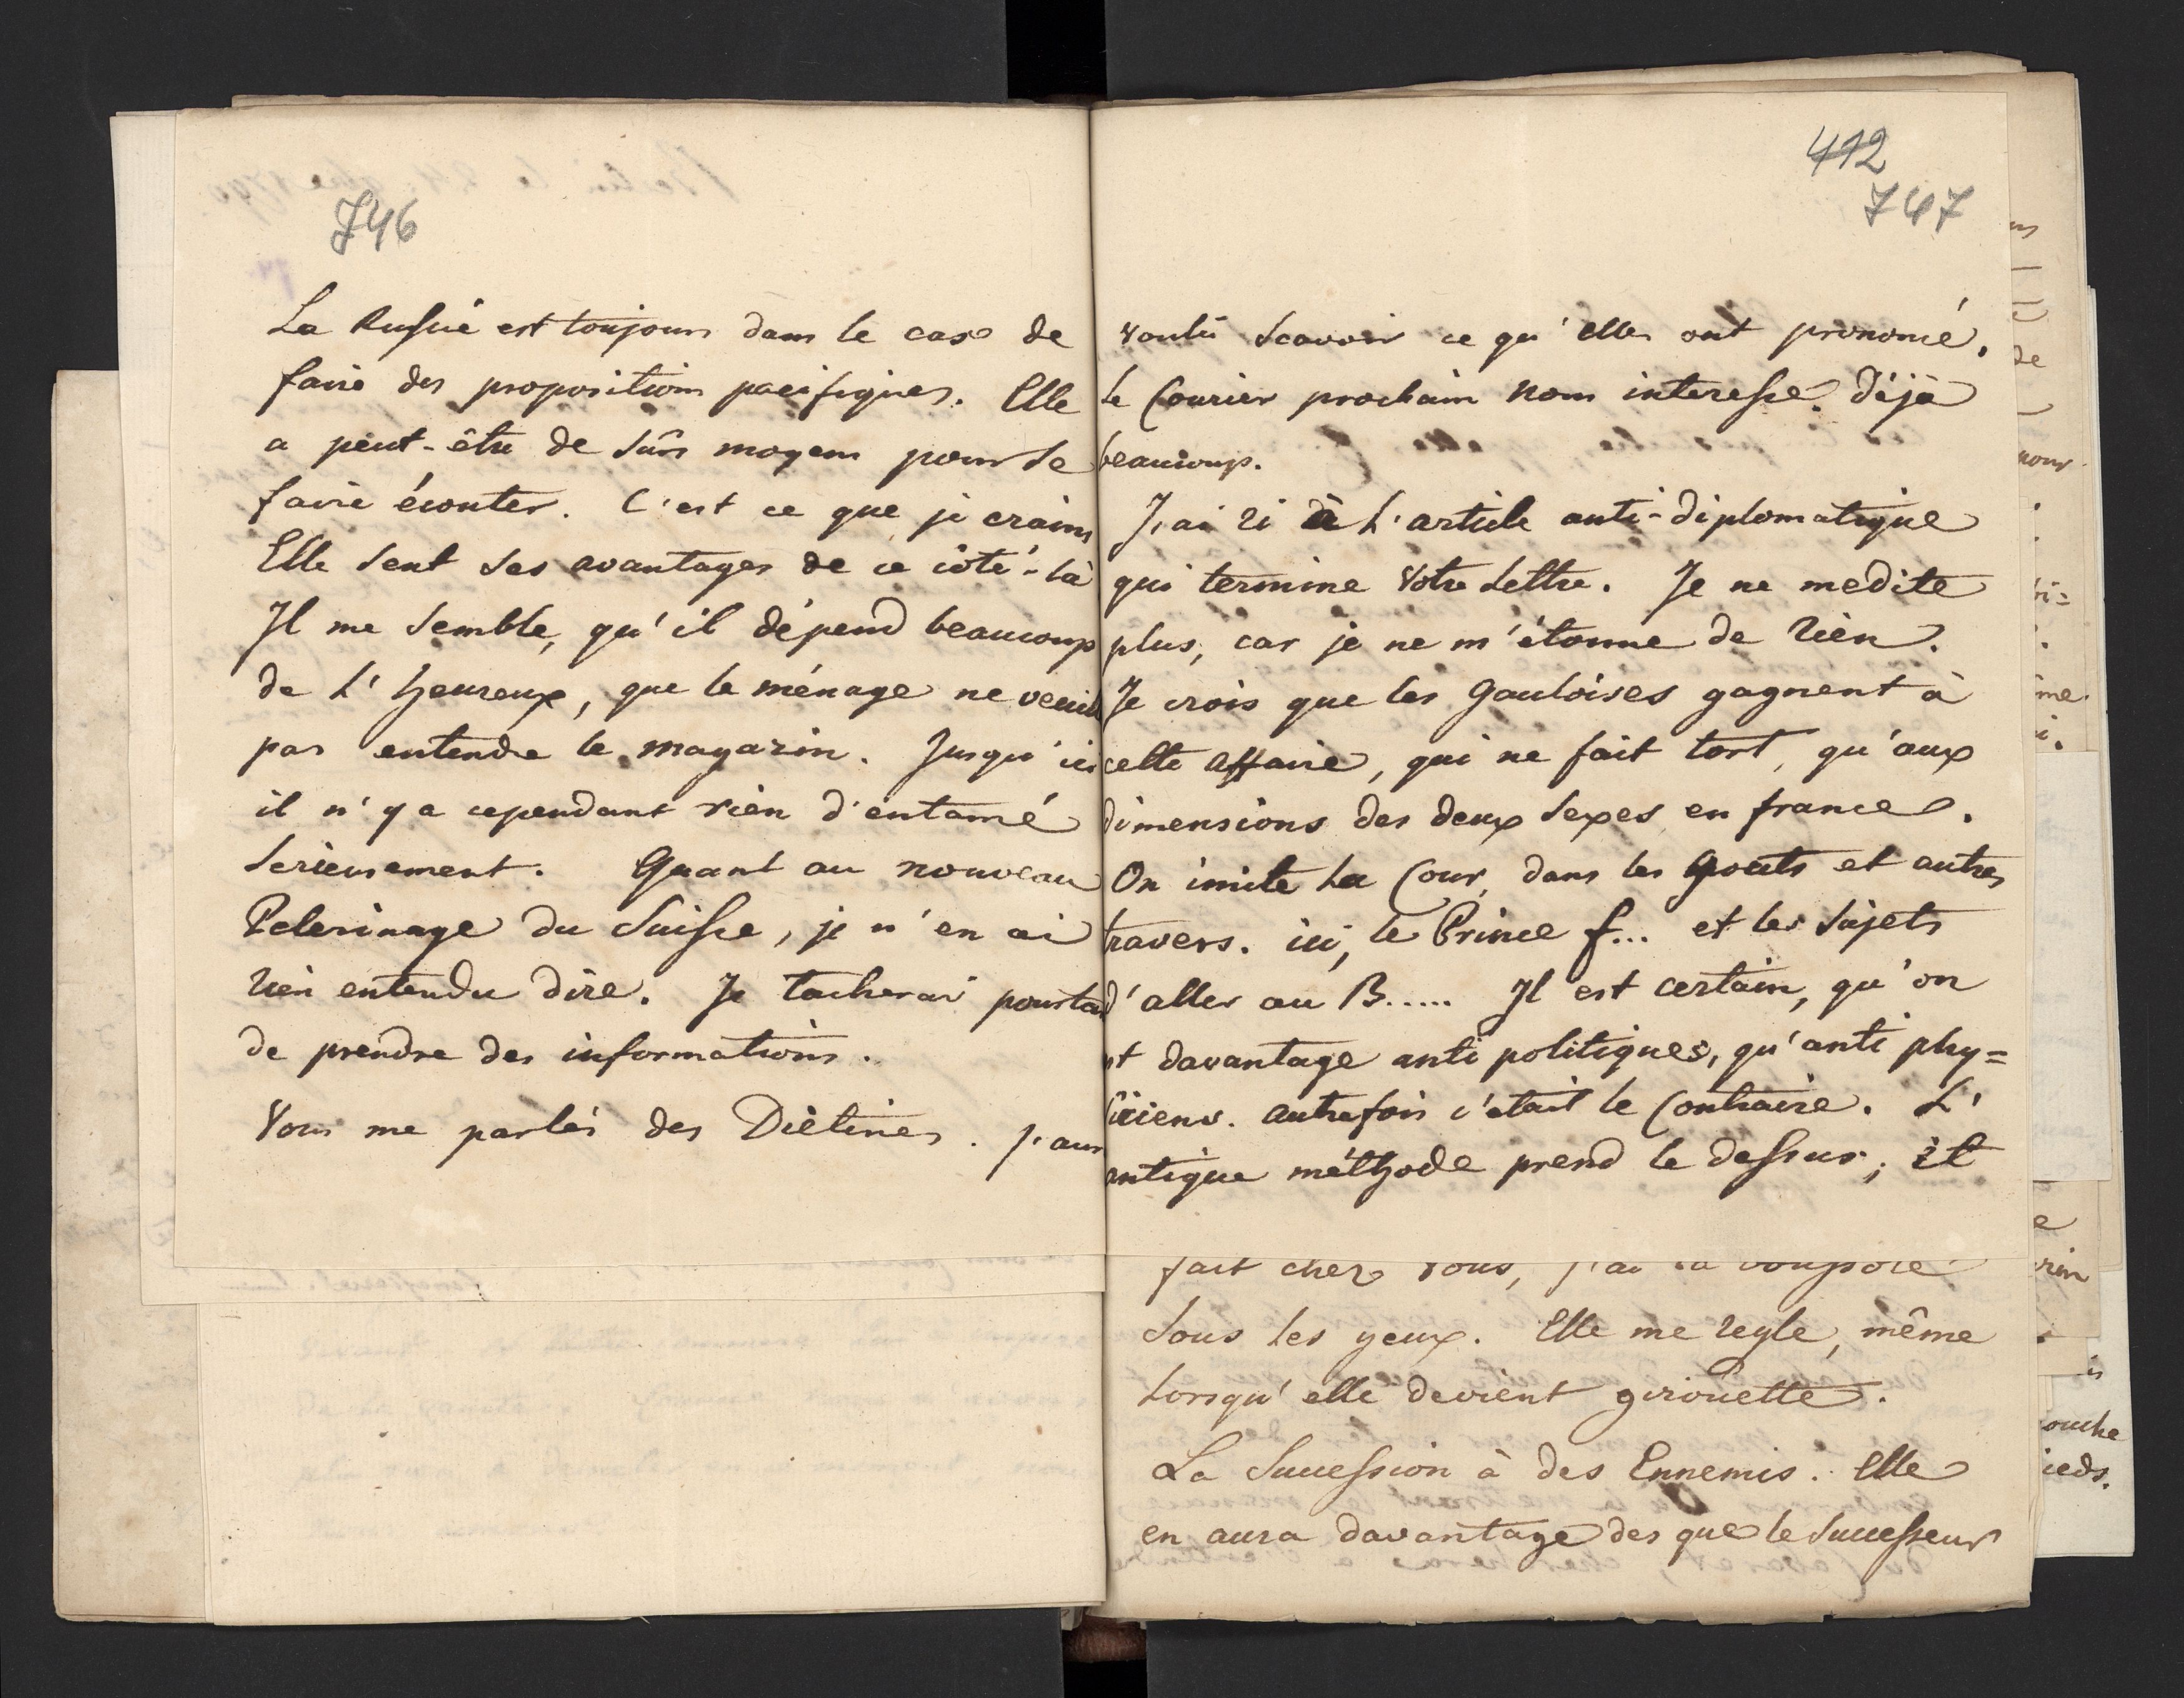 746
La Russie est toujours dans le case de
faire des propositions pacifiques. Elle
a peut-être de sûrs moyens pour se
faire écouter. C'est ce que je crains
Elle sent ses avantages de ce côté-là
Il me semble, qu'il dépend beaucoup
de L'heureux, que le ménage ne veuill
pas entendre le magazin. Jusqu'ici
il n'y a cependant rien d'entamé
serieusement. Quant au nouveau
Pelerinage du Suisse, je n'en ai
rien entendu dire. Je tacherai pourtan
de prendre des informations.
Vous me parlés des Diètines. J'aur
412
747
voulû scavoir ce qu'elles ont prononcé.
Le Courier prochain nous interesse déjà
beaucoup.
J'ai ri à L'article anti-diplomatique
qui termine Votre Lettre. Je ne medite
plus, car je ne m'étonne de rien.
Je crois que les Gauloises gagnent à
cette affaire, qui ne fait tort, qu'aux
dimensions des deux sexes en france.
On imite La Cour, dans les Gouts et autres
travers. ici, le Prince f... et les sujets
d'aller au B..... Il est certain, qu'on
st davantage anti politiques, qu'anti phy=
siciens. autrefois c'était le Contraire. L'
antique méthode prend le dessus; et
fait chez vous, j'ai la boussole
sous les yeux. Elle me regle, même
Lorsqu'elle devient girouette.
La Succession à des Ennemis. Elle
en aura davantage des que le Successeur
de
nour
me
rin
ouche
ieds.